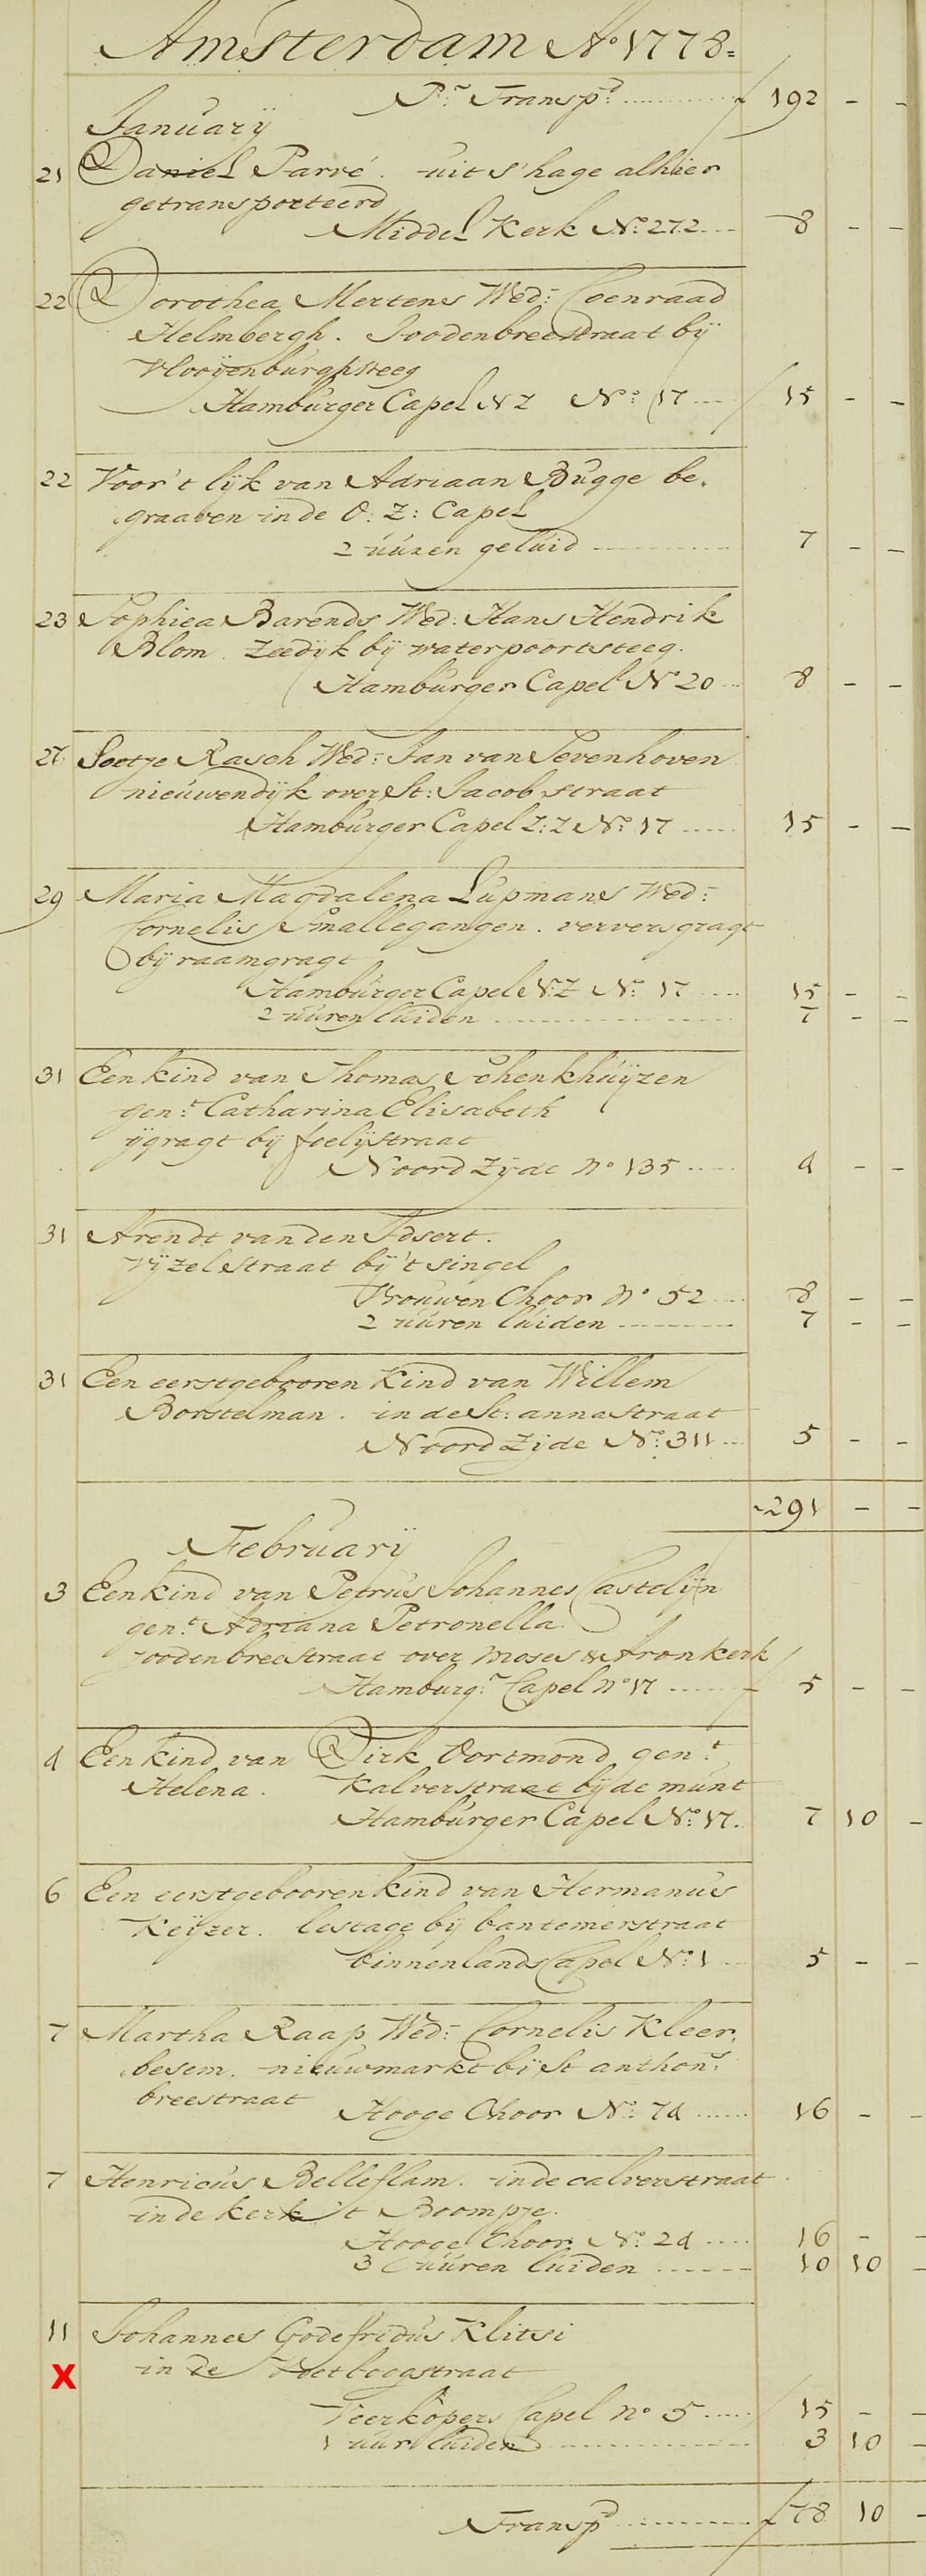 Amsterdam Ao 1778=
Pr Transpt ƒ 192 - -
January
21 Daniel Parré. uit s'hage alhier
getransporteerd
Middel Kerk No: 272 8 - -
22 Dorothea Mertens Wed: Coenraad
Helmbergh. Joodenbreestraat bÿ
Vlooÿenburghsteeg
Hamburger Capel N Z No: 17 15 - -
22 Voor 't lijk van Adriaan Bugge be,
graaven in de O: Z: Capel
2 uuren geluid 7 - -
23 Sophiea Barends Wed: Hans Hendrik
Blom. Zeedijk bij waterpoortsteeg.
Hamburger Capel No 20 8 - -
27 Soetje Rasch Wed: Jan van Sevenhoven
nieuwendijk over St: Jacobstraat
Hamburger Capel Z: Z No: 17 15 - -
29 Maria Magdalena Lupmans Wed:
Cornelis Smallegangen. verversgragt
bÿ raamgragt
Hamburger Capel N: Z No: 17 15 - -
2 uuren luiden 7 - -
31 Een kind van Thomas Schenkhuÿzen
gen:t Catharina Elisabeth
ÿgragt bij foelÿstraat
Noord Zijde No 135 4 - -
31 Arendt van den Idsert.
vÿzelstraat bÿ 't singel
Vrouwen Choor No 52 8 - -
2 uuren luiden 7 - -
31 Een eerstgebooren Kind van Willem
Borstelman. in de St: annastraat
Noord Zijde No: 311 5 - -
291 - -
February
3 Een kind van Petrus Johannes Castelÿn
gen:t Adriana Petronella.
joodenbreestraat over Moses & Aronkerk
Hamburgr Capel No 17 ƒ 5 - -
4 Een kind van Dirk Oortmond gen:t
Helena. Kalverstraat bij de munt
Hamburger Capel No: 17. 7 10 -
6 Een eerstgeboorenkind van Hermanus
Keÿzer. lestage bij bantemerstraat
binnenlands Capel No: 1 5 - -
7 Martha Raap Wed: Cornelis Kleer,
besem. nieuwmarkt bÿ St anthons
breestraat
Hooge Choor No: 74 16 - -
7 Henricus Belleflam. in de calverstraat
in de kerk 't Boompje.
Hooge Choor No: 24 16 - -
3 uuren luiden 10 10 -
11 Johannes Godefridus Klitsi
X in de Voetboogstraat
Veerkopers Capel No 5 15 - -
1 uur luiden 3 10 -
Transpt ƒ 78 10 -